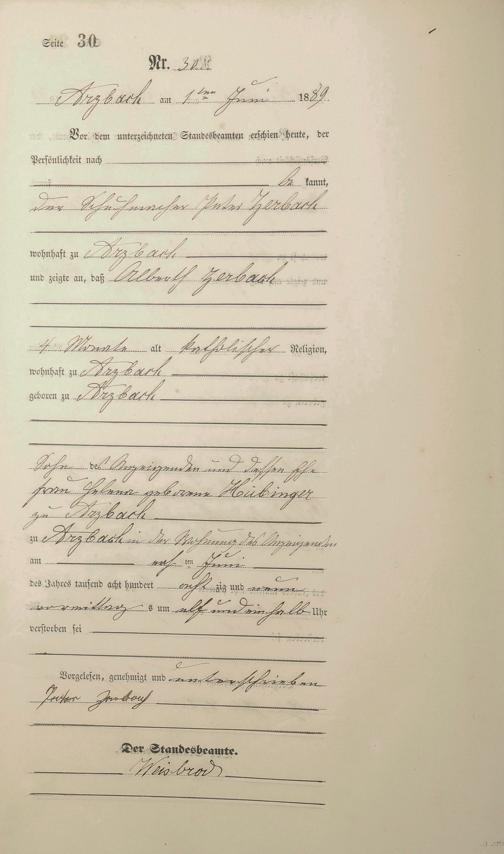 Seite 30
Nr. 30
Arzbach am 1ten Juni 1889.
Vor dem unterzeichneten Standesbeamten erschien heute, der
Persönlichkeit nach
be kannt,
der Schuhmacher Peter Zerbach
wohnhaft zu Arzbach
und zeigte an, daß Albert Zerbach
4 Monate alt katholischer Religion,
wohnhaft zu Arzbach
geboren zu Arzbach
Sohn des Anzeigenden und dessen Ehe
frau Helena geborene Hübinger
zu Arzbach
zu Arzbach in der Wohnung des Anzeigenden
am ten Juni
des Jahres tausend acht hundert acht zig und neun
vormittag s um elf und einhalb Uhr
verstorben sei
Vorgelesen, genehmigt und unterschrieben
Peter Zerbach
Der Standesbeamte.
Weisbrod